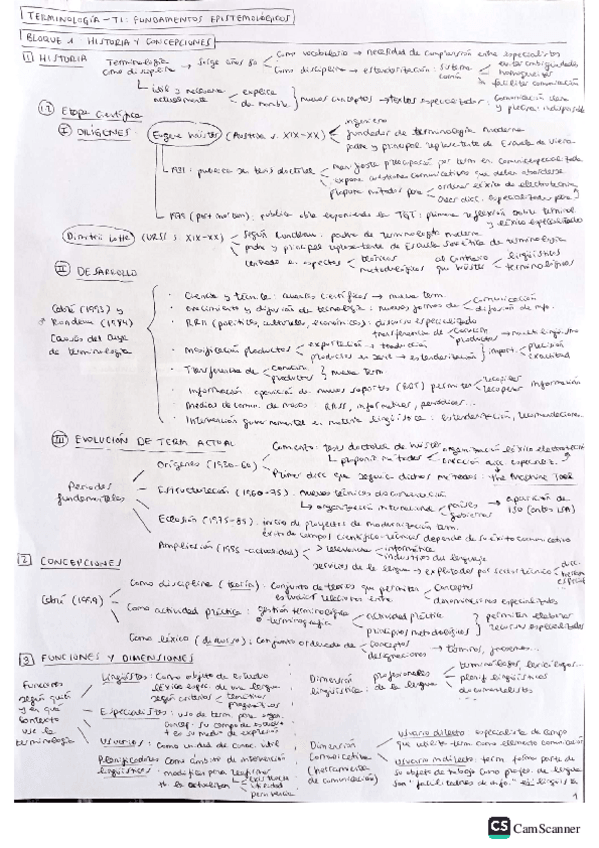 TERMINOLOGÍA - T1: FUNDAMENTOS EPISTEMOLÓGICOS
BLOQUE 1 HISTORIA Y CONCEPCIONES
1 HISTORIA
Terminología como disciplina → Surge años 30
Como vocabulario → necesidad de comprensión entre especialistas
Como disciplina → estandarización: sistema común
evitar ambigüedades
facilitar comunicación
útil y necesaria actualmente
nuevos conceptos → textos especializados: comunicación clara y precisa indispensable
1.2 Etapa Científica
I ORÍGENES
Eugene Wüster (Austria s. XIX-XX)
ingeniero
fundador de terminología moderna
padre y principal representante de Escuela de Viena
1931: publica su tesis doctoral
manifiesta preocupación por term en comun especializada
expone cuestiones comunicativas que deben abordarse
propone métodos para
ordenar léxico de electrotecnia
crear dicc. especializados
1979 (post mortem): publica obra exponiendo la TGT: primera reflexión sobre terminol y léxico especializado
Dimitrii Lotte (URSS s. XIX-XX)
padre de terminología moderna
padre y principal representante de Escuela Soviética de terminología
centrado en aspectos
teóricos
metodológicos
al contrario que Wüster
lingüísticos
terminológicos
II DESARROLLO
Cabré (1993) y Rondeau (1984) Causas del auge de terminología
· Ciencia y técnica: avances científicos → nueva term.
· crecimiento y difusión de tecnología: nuevas formas de
comunicación
difusión de info.
· RRII (políticas, culturales, económicas): discurso especializado
transferencia de
conocim
productos
→ multilingüismo
· Masificación productos
exportación → traducción
productos en serie → estandarización
import.
precisión
exactitud
· Transferencia de
conocim
productos
nueva term
· Información aparición de nuevos soportes (BDT) permiten
recopilar
recuperar
información
· Medios de comun. de masas RRSS, informativos, periódicos...
· Intervención gubernamental en materia lingüística: estandarización, recomendaciones
III EVOLUCIÓN DE TERM ACTUAL
Periodos fundamentales
Orígenes (1930-60)
Comienzo: tesis doctoral de Wüster
propone métodos
organización léxico electrotecnia
creación dicc especializ.
Primer dicc que seguía dichos métodos: The Machine Tool
Estructuración (1960-75): nuevas técnicas documentación
organización internacional
países
gobiernos
aparición de ISO (antes ISA)
Eclosión (1975-85): inicio de proyectos de modernización term.
éxito de campos científico-técnicos depende de su éxito comunicativo
Ampliación (1985-actualidad)
> relevancia
informática
industrias del lenguaje
servicios de la lengua → explotados por sector técnico
2 CONCEPCIONES
Cabré (1999)
Como disciplina (teoría): conjunto de teorías que permiten estudiar relaciones entre
conceptos
denominaciones especializadas
Como actividad práctica: gestión terminológica o terminografía
actividad práctica
principios metodológicos
permiten elaborar recursos especializados
Como léxico (discurso): conjunto ordenado de
conceptos
designaciones
→ términos, frasemas...
3 FUNCIONES Y DIMENSIONES
Funciones según quién y en qué contexto use la terminología
Lingüistas: como objeto de estudio
léxico espec. de una lengua según criterios
temáticos
pragmáticos
Especialistas: uso de term para organ. concep. su campo de estudio + es su medio de expresión
Usuarios: como unidad de comun. útil
Planificadores lingüísticos
como ámbito de intervención
modifican para reafirmar
existencia
utilidad
pervivencia
Dimensión lingüística:
profesionales de la lengua
terminólogos, lexicólogos...
planif lingüísticos
documentalistas
...
Dimensión Comunicativa (herramienta de comunicación)
usuario directo especialista de campo que utiliza term como elemento comunicación
usuario indirecto: term forma parte de su objeto de trabajo como profes. de lengua son "facilitadores de info." ej: lingüista
1
CS CamScanner